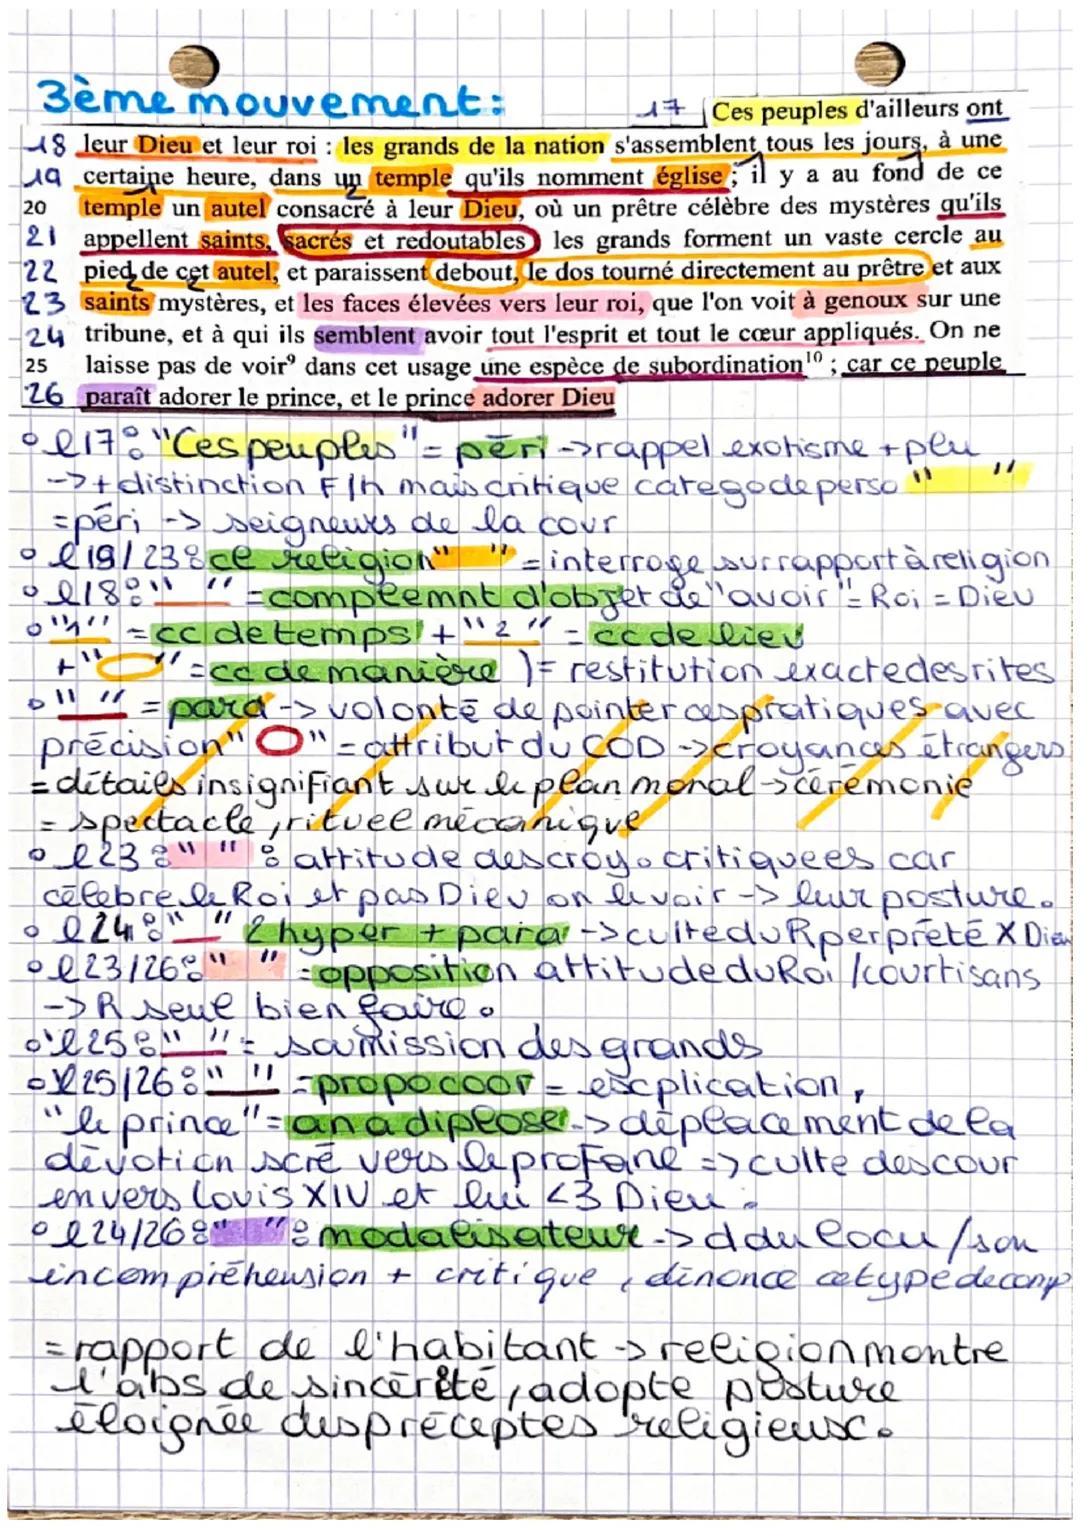 3ème mouvement:
17 Ces peuples d'ailleurs ont
18 leur Dieu et leur roi : les grands de la nation s'assemblent tous les jours, à une
19 certaine heure, dans un temple qu'ils nomment église ; il y a au fond de ce
20 temple un autel consacré à leur Dieu, où un prêtre célèbre des mystères qu'ils
21 appellent saints, sacrés et redoutables ; les grands forment un vaste cercle au
22 pied de cet autel, et paraissent debout, le dos tourné directement au prêtre et aux
23 saints mystères, et les faces élevées vers leur roi, que l'on voit à genoux sur une
24 tribune, et à qui ils semblent avoir tout l'esprit et tout le cœur appliqués. On ne
25 laisse pas de voir⁹ dans cet usage une espèce de subordination¹⁰ ; car ce peuple
26 paraît adorer le prince, et le prince adorer Dieu
l17: "Ces peuples" = péri -> rappel exotisme + plu
-> + distinction F/h mais critique catego de perso " "
= péri -> seigneurs de la cour
l19/23: cl religion " " = interroge sur rapport à religion
l18: " " = complemnt d'objet de "avoir" = Roi = Dieu
"1" = cc de temps + "2" = cc de lieu
+ " " = cc de manière ) = restitution exacte des rites
" " = para -> volonté de pointer ces pratiques avec
précision " " = attribut du COD -> croyances étrangers
= détails insignifiant sur le plan moral -> cérémonie
= spectacle, rituel mécanique
l23: " " : attitude des croy. critiquees car
célèbre le Roi et pas Dieu on le voit -> leur posture.
l24: " " 2 hyper + para -> culte du R perpreté X Dieu
l23/26: " " = opposition attitude du Roi / courtisans
-> R seul bien faire.
l25: " " = soumission des grands
l25/26: " " = propo coor = explication,
"le prince" = anadiplose -> déplacement de la
dévotion scré vers le profane => culte des cour
envers Louis XIV et lui <3 Dieu.
l24/26: " " : modalisateur -> d du locu / son
incompréhension + critique, dénonce ce type de comp
= rapport de l'habitant -> religion montre
l'abs de sincérité, adopte posture
éloignée des préceptes religieux.